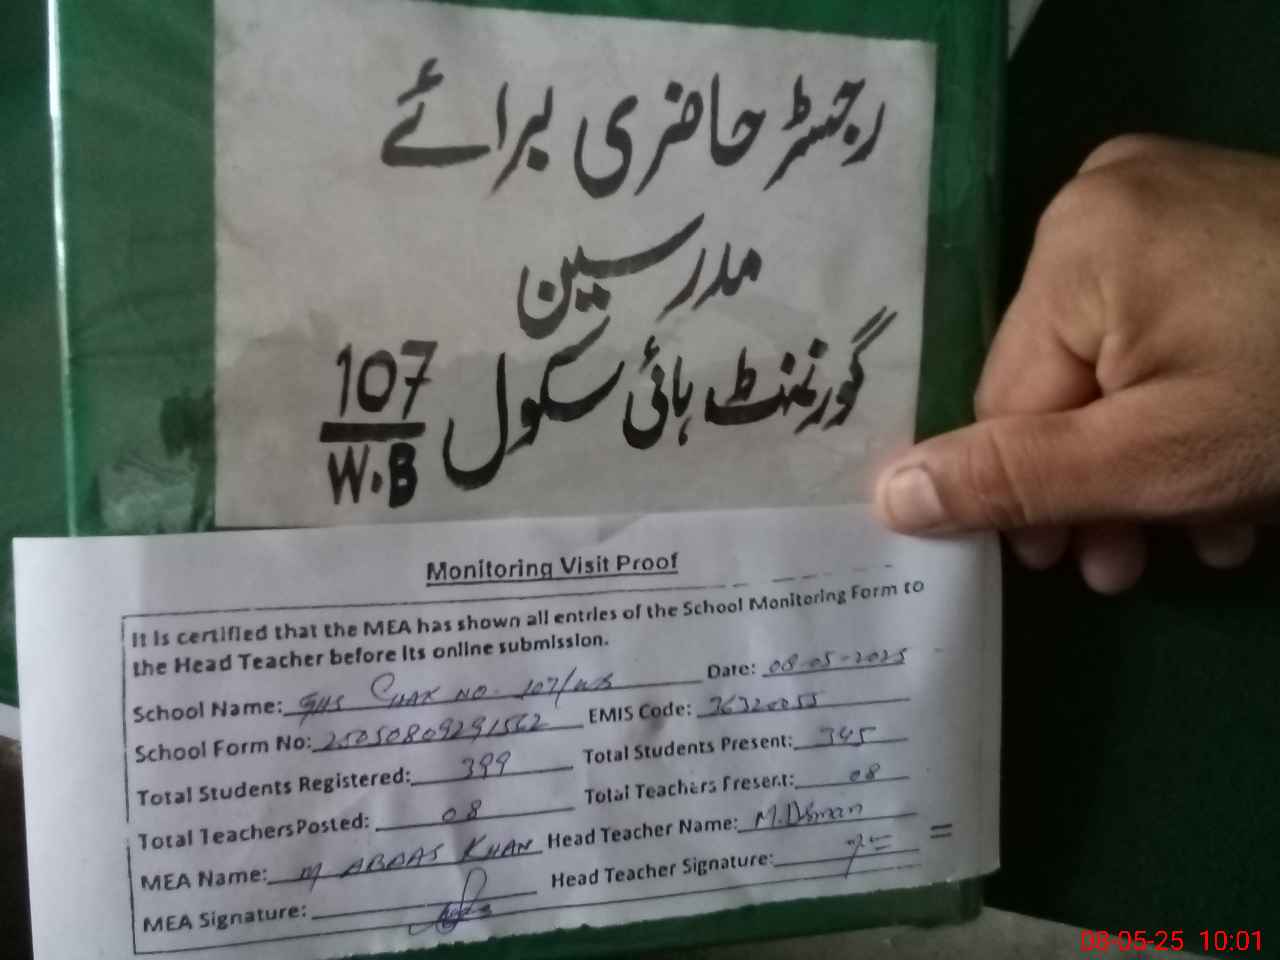 رجسٹر حاضری برائے
مدرسین
گورنمنٹ ہائی سکول 107/W.B
Monitoring Visit Proof
It is certified that the MEA has shown all entries of the School Monitoring Form to
the Head Teacher before its online submission.
School Name: GHS CHAK NO. 107/WB Date: 08-05-2025
School Form No: 25050809291562 EMIS Code: 36320055
Total Students Registered: 399 Total Students Present: 345
Total Teachers Posted: 08 Total Teachers Present: 08
MEA Name: M ABBAS KHAN Head Teacher Name: M. Usman
MEA Signature: Head Teacher Signature:
08-05-25 10:01